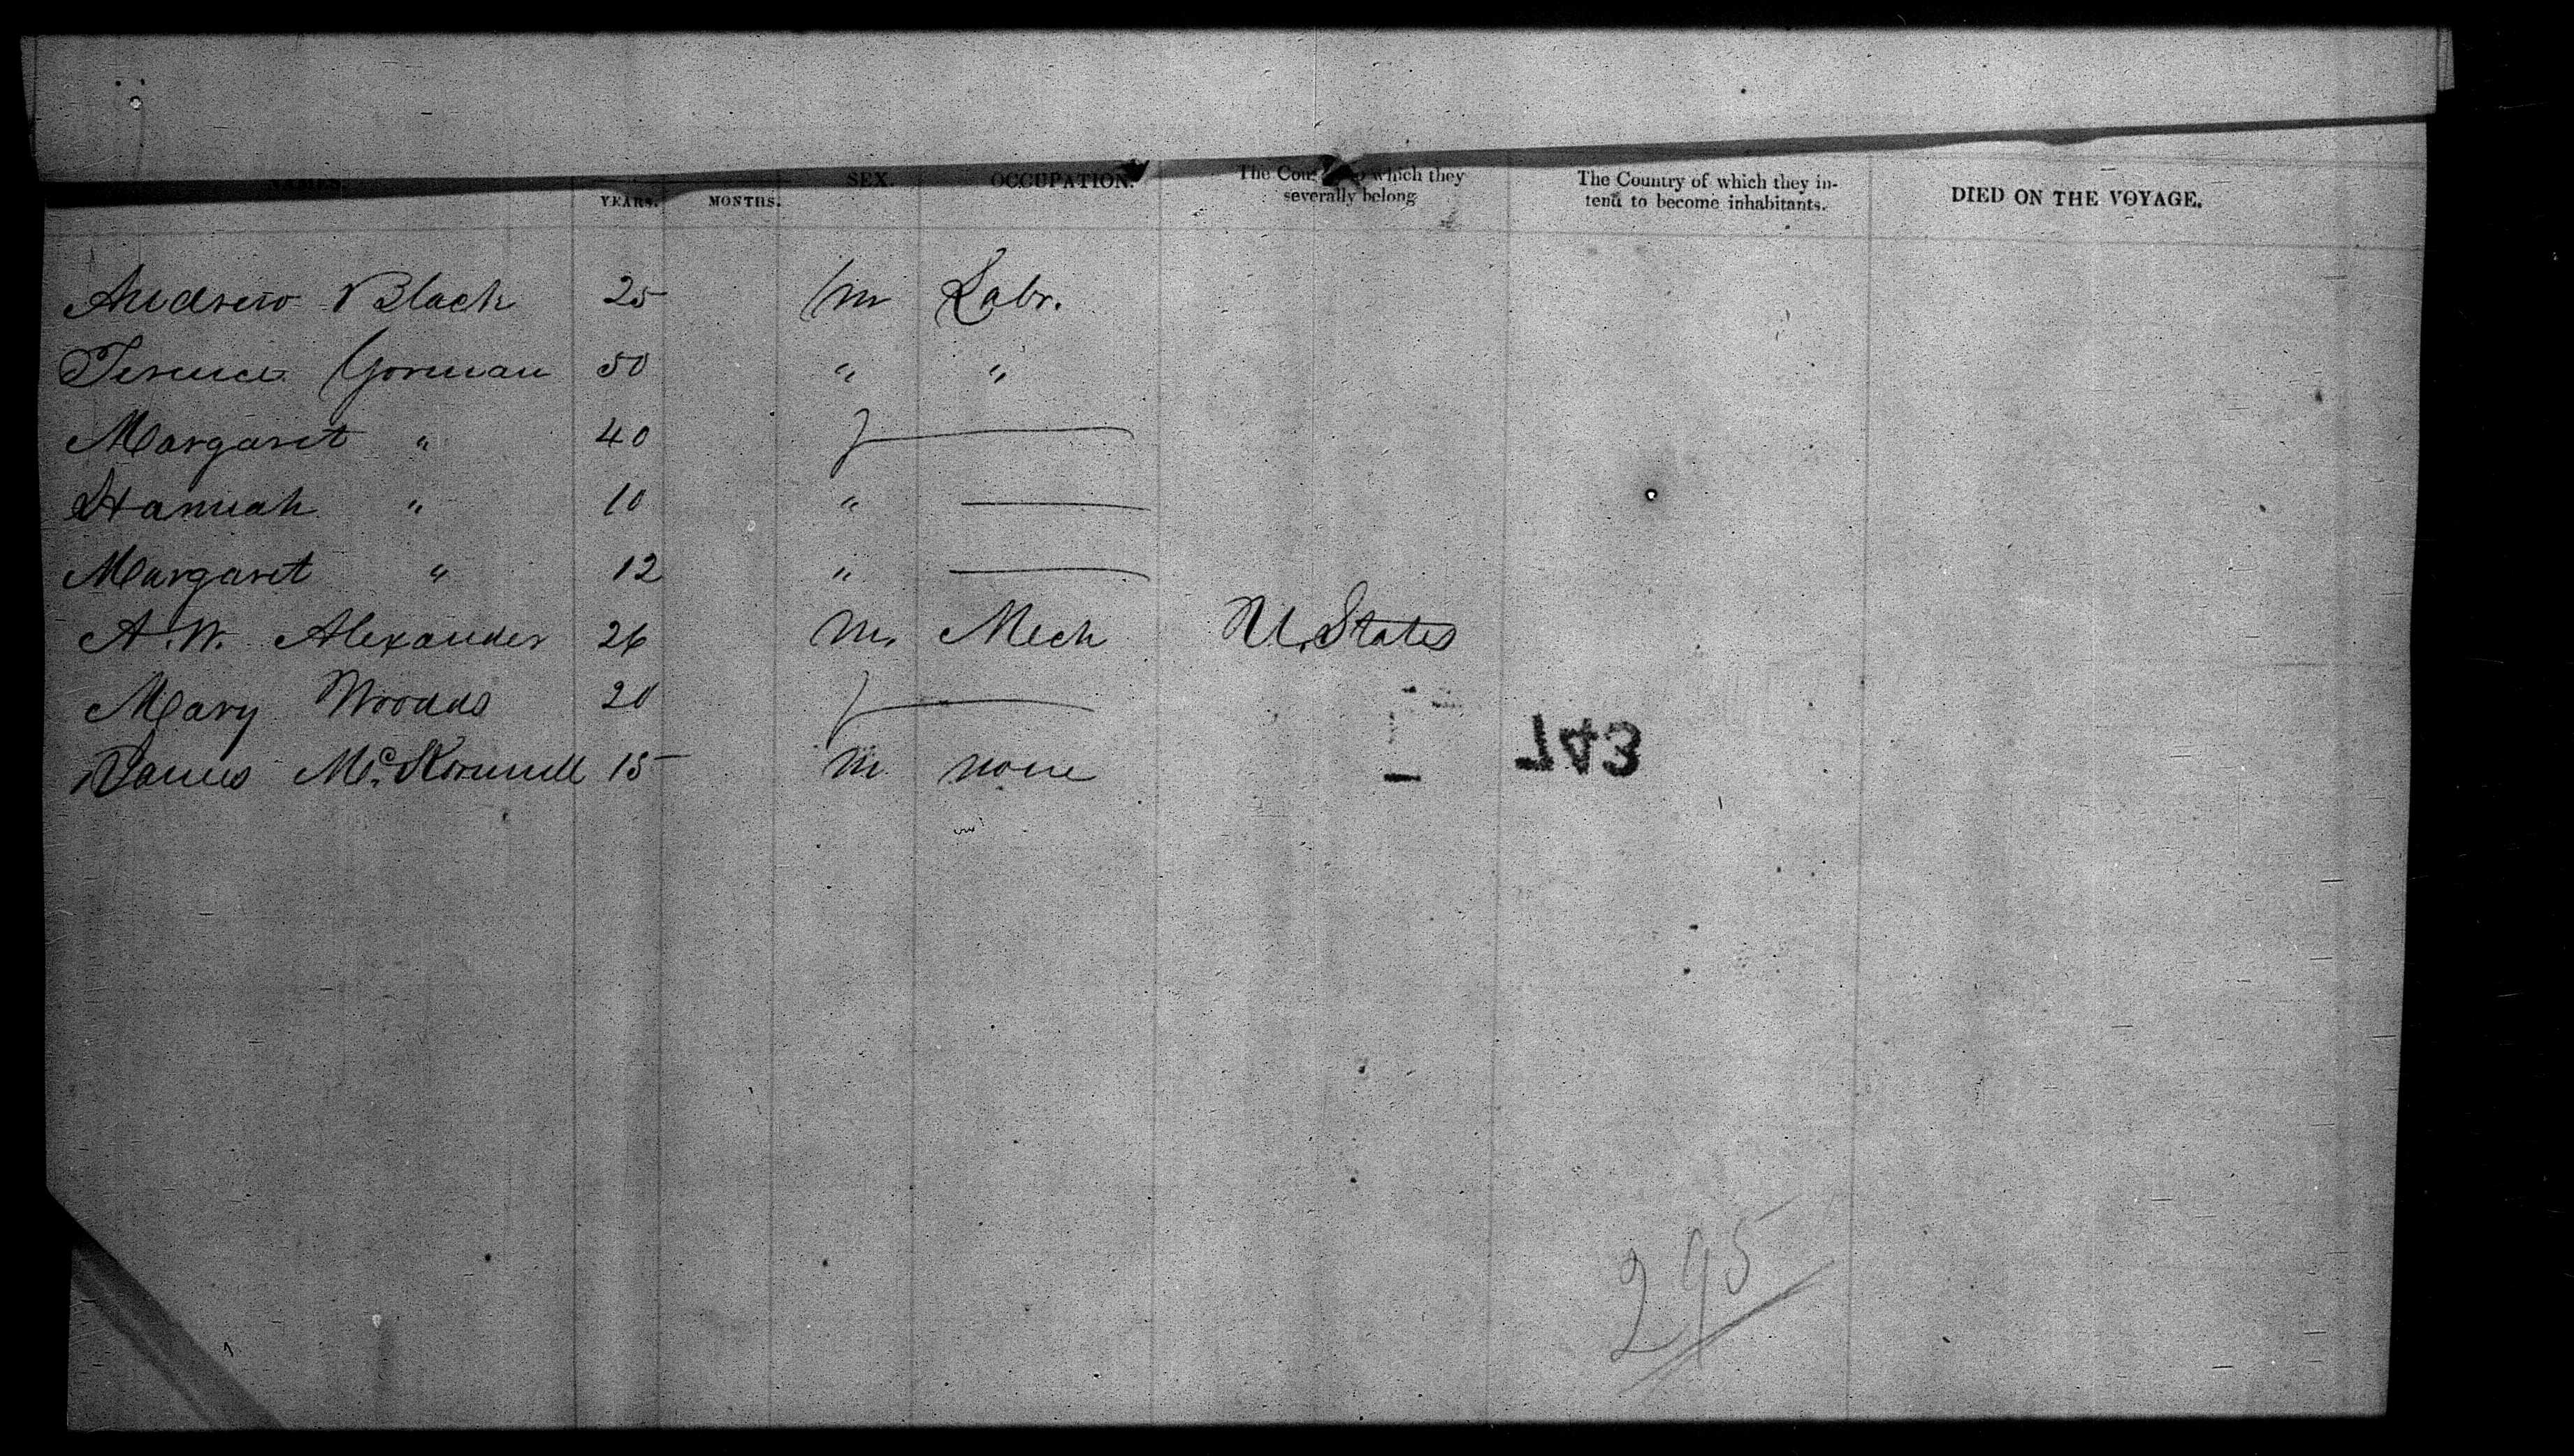 NAMES. YEARS. MONTHS. SEX. OCCUPATION. The Country to which they severally belong The Country of which they intend to become inhabitants. DIED ON THE VOYAGE.
Andrew Black 25 m Labr.
Terence Gorman 50 " "
Margaret " 40 f —
Hannah " 10 " —
Margaret " 12 " —
A.W. Alexander 26 m. Mech U. States
Mary Woods 20 f —
James 15 m none
743
295